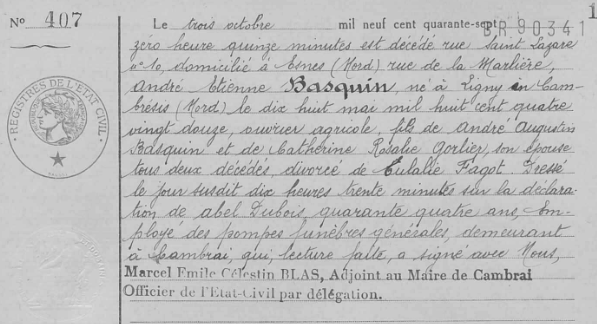 1
N° 407
Le trois octobre mil neuf cent quarante-sept
B.R.90341
zéro heure quinze minutes est décédé rue Saint Lazare
n° 10, domicilié à Esnes (Nord) rue de la Marlière,
André Etienne Basquin, né à Ligny en Cam-
brésis (Nord) le dix huit mai mil huit cent quatre
vingt douze, ouvrier agricole, fils de André Augustin
Basquin et de Catherine Rosalie Gorlier, son épouse
tous deux décédés, divorcé de Eulalie Fagot. Dressé
le jour susdit dix heures trente minutes sur la déclara-
tion de Abel Dubois, quarante quatre ans, Em-
ployé des pompes funèbres générales, demeurant
à Cambrai, qui, lecture faite, a signé avec Nous,
Marcel Emile Célestin BLAS, Adjoint au Maire de Cambrai
Officier de l'Etat-Civil par délégation.
REGISTRES DE L'ETAT CIVIL